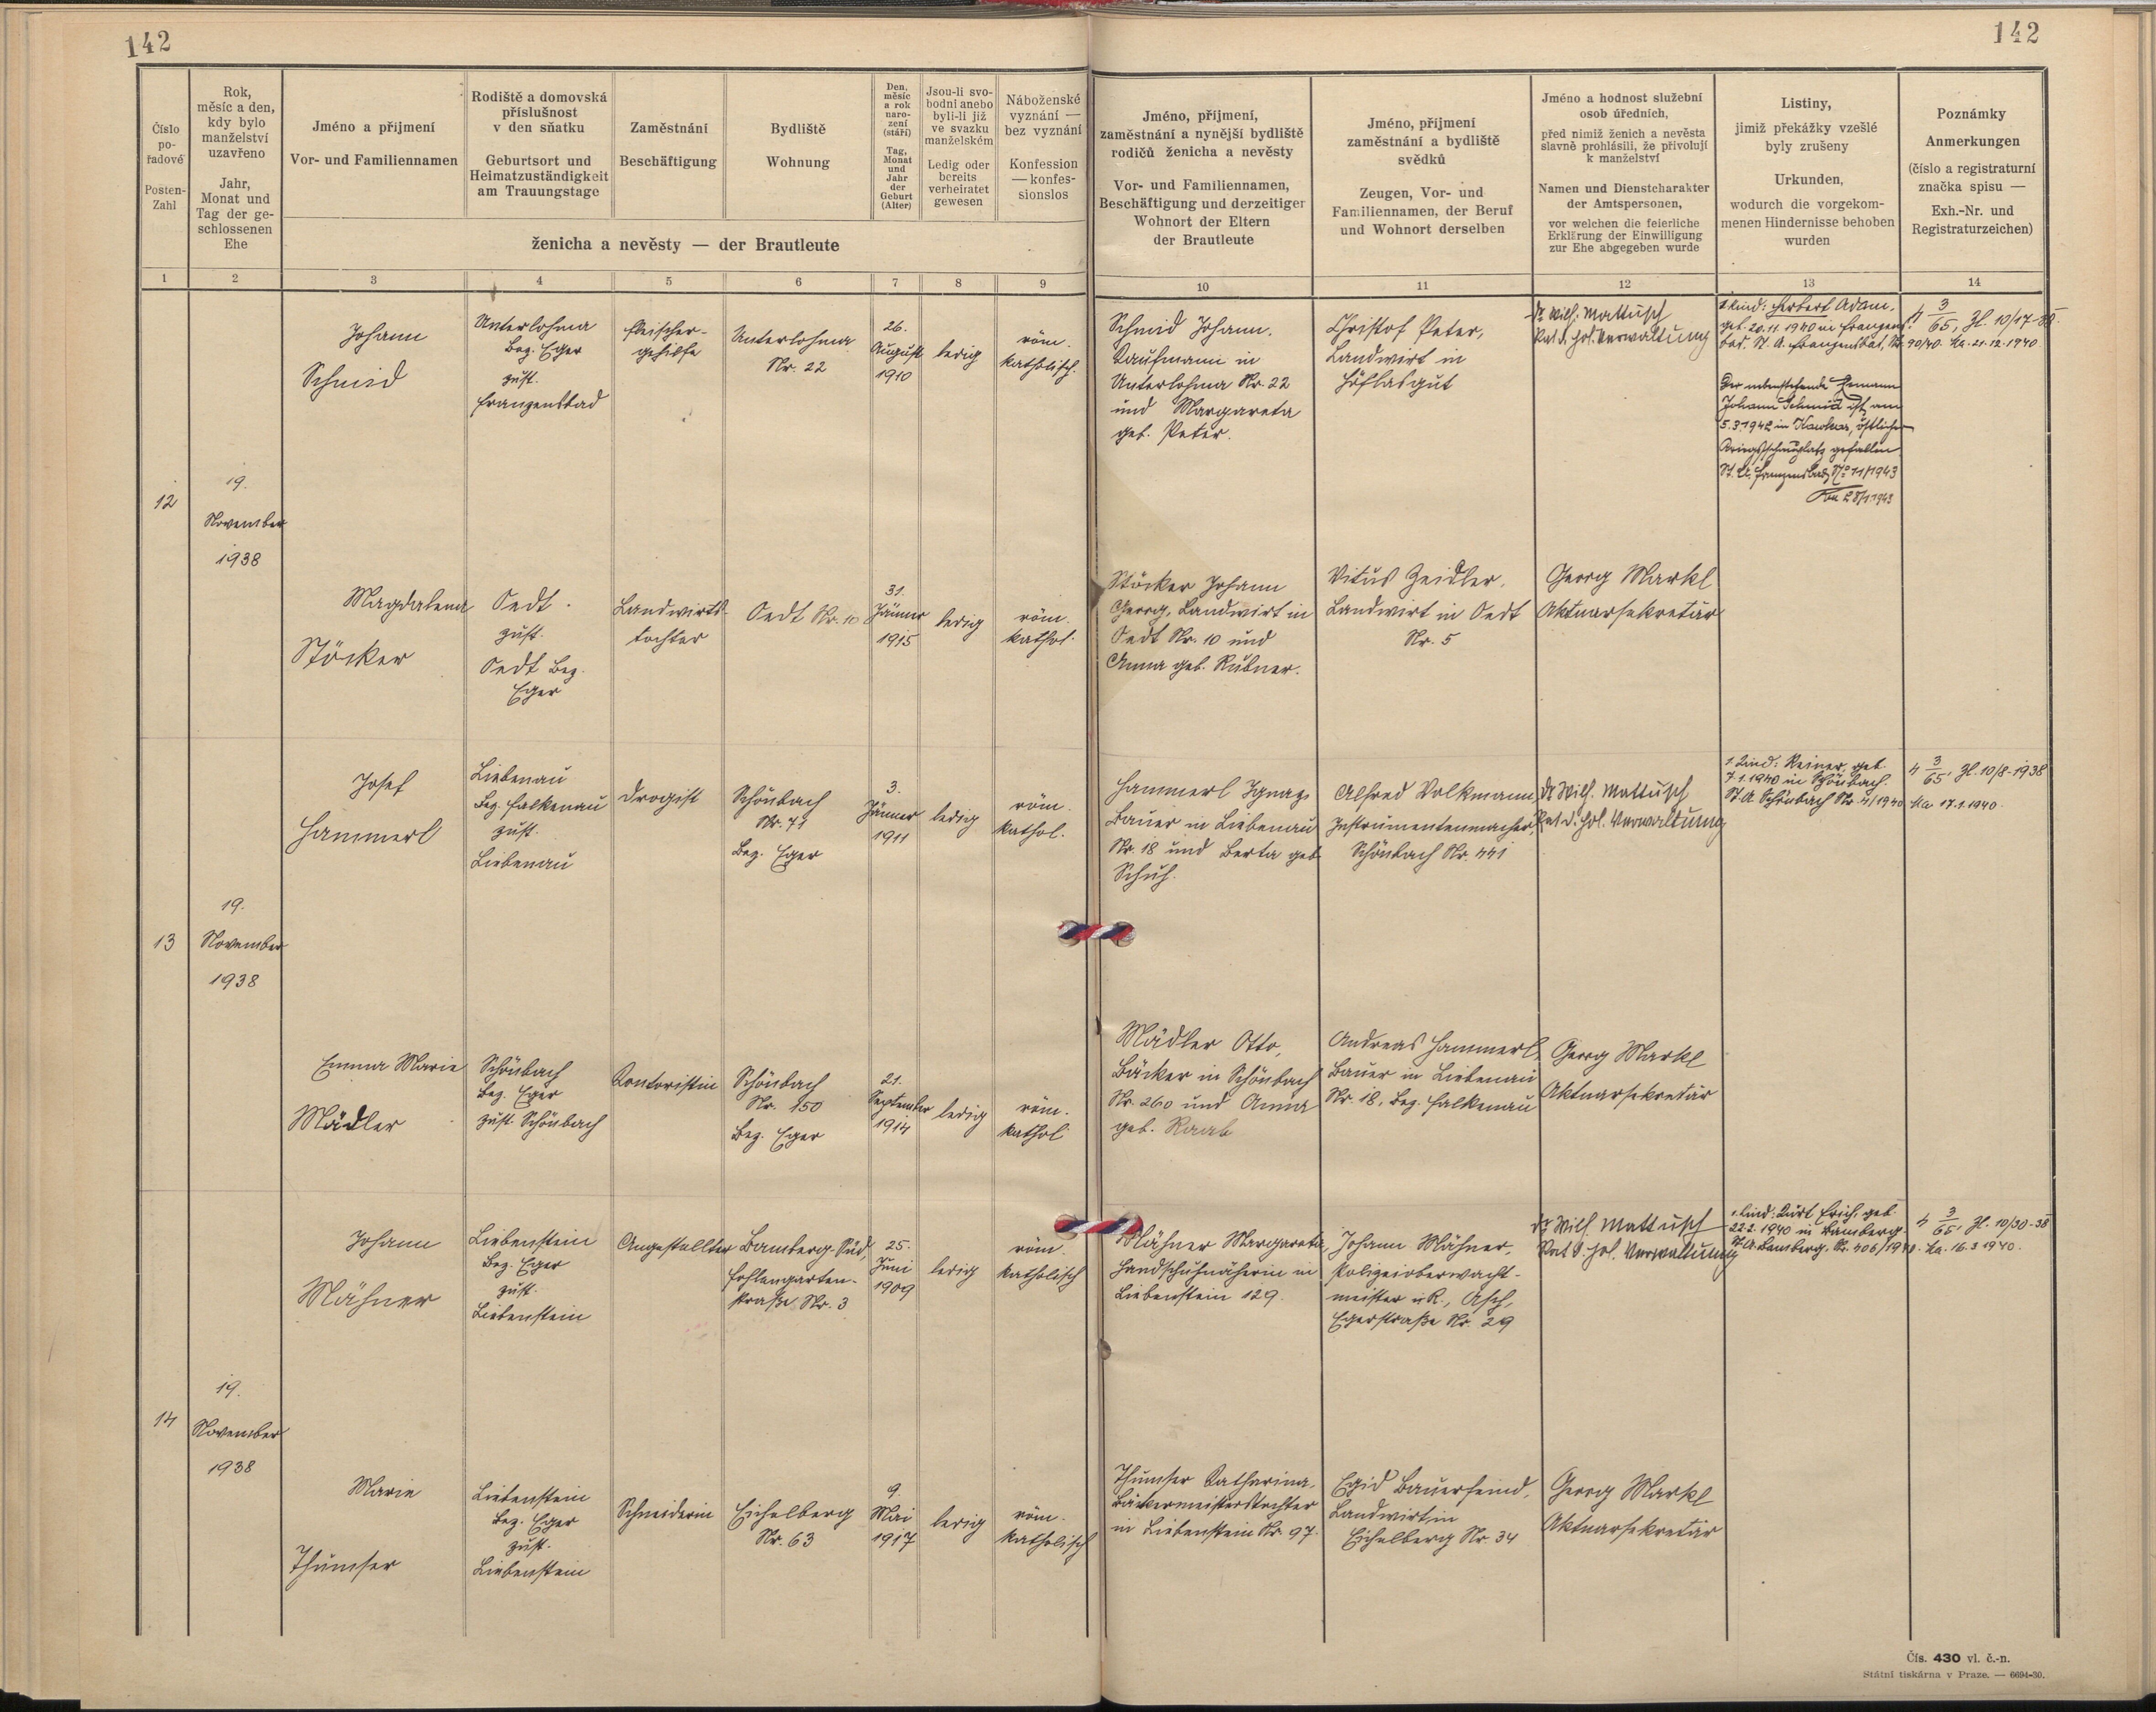 142
142
Číslo
po-
řadové
Posten-
Zahl
Rok,
měsíc a den,
kdy bylo
manželství
uzavřeno
Jahr,
Monat und
Tag der ge-
schlossenen
Ehe
Jméno a přijmení
Vor- und Familiennamen
Rodiště a domovská
příslušnost
v den sňatku
Geburtsort und
Heimatzuständigkeit
am Trauungstage
Zaměstnání
Beschäftigung
Bydliště
Wohnung
Den,
měsíc
a rok
naro-
zení
(stáří)
Tag,
Monat
und
Jahr
der
Geburt
(Alter)
Jsou-li svo-
bodni anebo
byli-li již
ve svazku
manželském
Ledig oder
bereits
verheiratet
gewesen
Náboženské
vyznání —
bez vyznání
Konfession
— konfes-
sionslos
ženicha a nevěsty — der Brautleute
Jméno, přijmení,
zaměstnání a nynější bydliště
rodičů ženicha a nevěsty
Vor- und Familiennamen,
Beschäftigung und derzeitiger
Wohnort der Eltern
der Brautleute
Jméno, přijmení
zaměstnání a bydliště
svědků
Zeugen, Vor- und
Familiennamen, der Beruf
und Wohnort derselben
Jméno a hodnost služební
osob úředních,
před nimiž ženich a nevěsta
slavně prohlásili, že přivolují
k manželství
Namen und Dienstcharakter
der Amtspersonen,
vor welchen die feierliche
Erklärung der Einwilligung
zur Ehe abgegeben wurde
Listiny,
jimiž překážky vzešlé
byly zrušeny
Urkunden,
wodurch die vorgekom-
menen Hindernisse behoben
wurden
Poznámky
Anmerkungen
(číslo a registraturní
značka spisu —
Exh.-Nr. und
Registraturzeichen)
1 2 3 4 5 6 7 8 9 10 11 12 13 14
12
19.
November
1938
Johann
Schmid
Unterlohma
Bez. Eger
zust.
Franzensbad
Fleischer-
gehilfe
Unterlohma
Nr. 22
26.
August
1910
ledig
röm.
katholisch.
Schmid Johann.
Kaufmann in
Unterlohma Nr. 22
und Margareta
geb. Peter.
Christof Peter,
Landwirt in
Höflasgut
Dr Wilh. Mattusch
Rat d. pol. Verwaltung
1. Kind: Herbert Adam,
geb. 20.11.1940 in Franzens-
bad. St. A. Franzensbad, Nr. 90/40. Ka. 21.12.1940
Der nebenstehende Ehemann
Johann Schmid ist am
5.3.1942 in östlicher
Kriegsschauplatz gefallen
St. A. Franzensbad No 11/1943
4 3/65, Zl. 10/17-38.
Magdalena
Stöcker
Oedt.
zust.
Oedt Bez.
Eger
Landwirts-
tochter
Oedt Nr. 10
31.
Jänner
1915
ledig
röm.
kathol.
Stöcker Johann
Georg, Landwirt in
Oedt Nr. 10 und
Anna geb. Rubner.
Vitus Zeidler.
Landwirt in Oedt
Nr. 5
Georg Markl
Aktuarsekretär
13
19.
November
1938
Josef
Hammerl
Liebenau
Bez. Falkenau
zust.
Liebenau
Drogist
Schönbach
Nr. 71
Bez. Eger
3.
Jänner
1911
ledig
röm.
kathol.
Hammerl Ignaz
Bauer in Liebenau
Nr. 18 und Berta geb.
Schuh.
Alfred Volkmann
Instrumentenmacher,
Schönbach Nr. 441
Dr Wilh. Mattusch
Rat d. pol. Verwaltung
1. Kind: Reiner, geb.
7.1.1940 in Schönbach.
St. A. Schönbach Nr. 4/1940 Ka 17.1.1940.
4 3/65, Zl. 10/8-1938
Emma Marie
Mädler
Schönbach
Bez. Eger
zust. Schönbach
Kontoristin
Schönbach
Nr. 150
Bez. Eger
21.
September
1914
ledig
röm.
kathol
Mädler Otto,
Bäcker in Schönbach
Nr. 260 und Anna
geb. Raab
Andreas Hammerl,
Bauer in Liebenau
Nr. 18, Bez. Falkenau
Georg Markl
Aktuarsekretär
14
19.
November
1938
Johann
Mähner
Liebenstein
Bez. Eger
zust.
Liebenstein
Angestellter
Bamberg-Süd,
Hohlengarten-
straße Nr. 3
25.
Juni
1909
ledig
röm.
katholisch
Mähner Margareta,
Handschuhnäherin in
Liebenstein 129.
Johann Mähner,
Polizeioberwacht-
meister i. R., Asch,
Egerstraße Nr. 29
Dr Wilh. Mattusch
Rat d. pol. Verwaltung
1. Kind: Kurt Erich, geb.
22.2.1940 in Bamberg
St. A. Bamberg, Nr. 406/1940. Ka. 16.3.1940.
4 3/65, Zl. 10/30-38
Marie
Thumser
Liebenstein
Bez. Eger
zust.
Liebenstein
Schneiderin
Eichelberg
Nr. 63
9.
Mai
1917
ledig
röm.
katholisch
Thumser Katharina,
Bäckermeisterstochter
in Liebenstein Nr. 97.
Egid Bauerfeind,
Landwirt in
Eichelberg Nr. 34
Georg Markl
Aktuarsekretär
Čís. 430 vl. č.-n.
Státní tiskárna v Praze. — 6694-30.